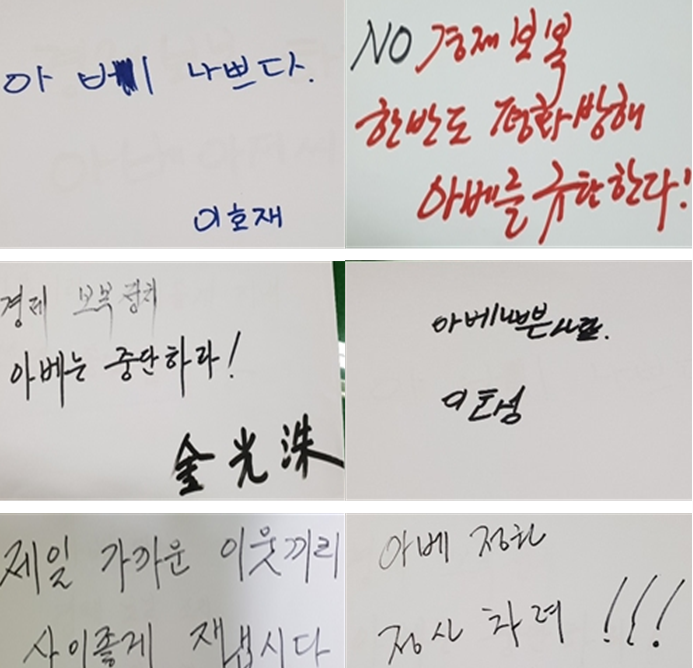 아 베 나쁘다.
이호재
NO 경제보복
한반도 평화방해
아베를 규탄한다!
경제 보복
아베는 중단하라!
金光洙
아베 나쁜사람.
이호성
제일 가까운 이웃끼리
사이좋게
아베 정한
정신 차려 !!!